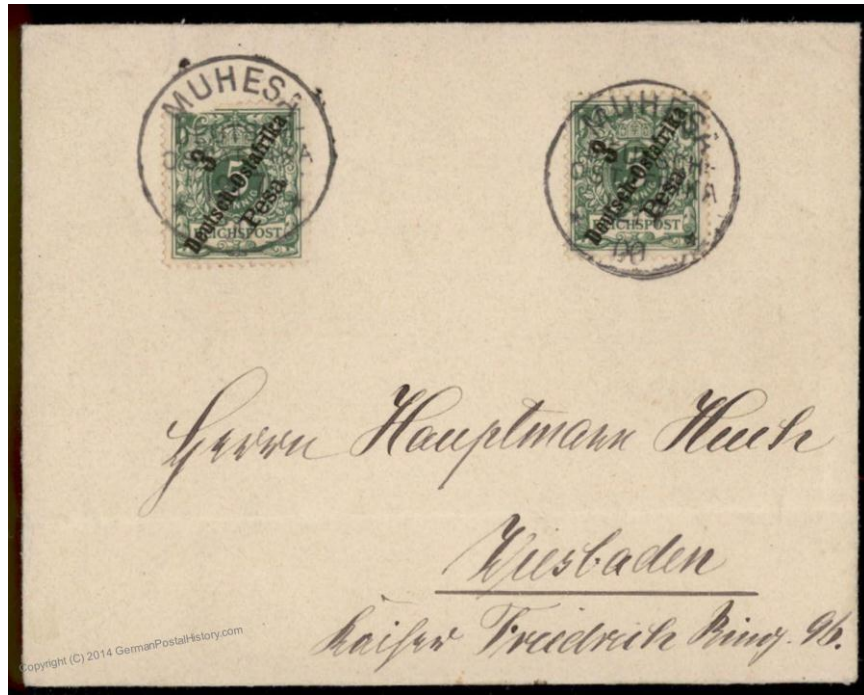 MUHESA
3
5
Deutsch-Ostafrika
Pesa
REICHSPOST
MUHESA
3
5
Deutsch-Ostafrika
Pesa
REICHSPOST
00
Herrn Hauptmann
Wiesbaden
Kaiser Friedrich Ring. 96.
Copyright (C) 2014 GermanPostalHistory.com